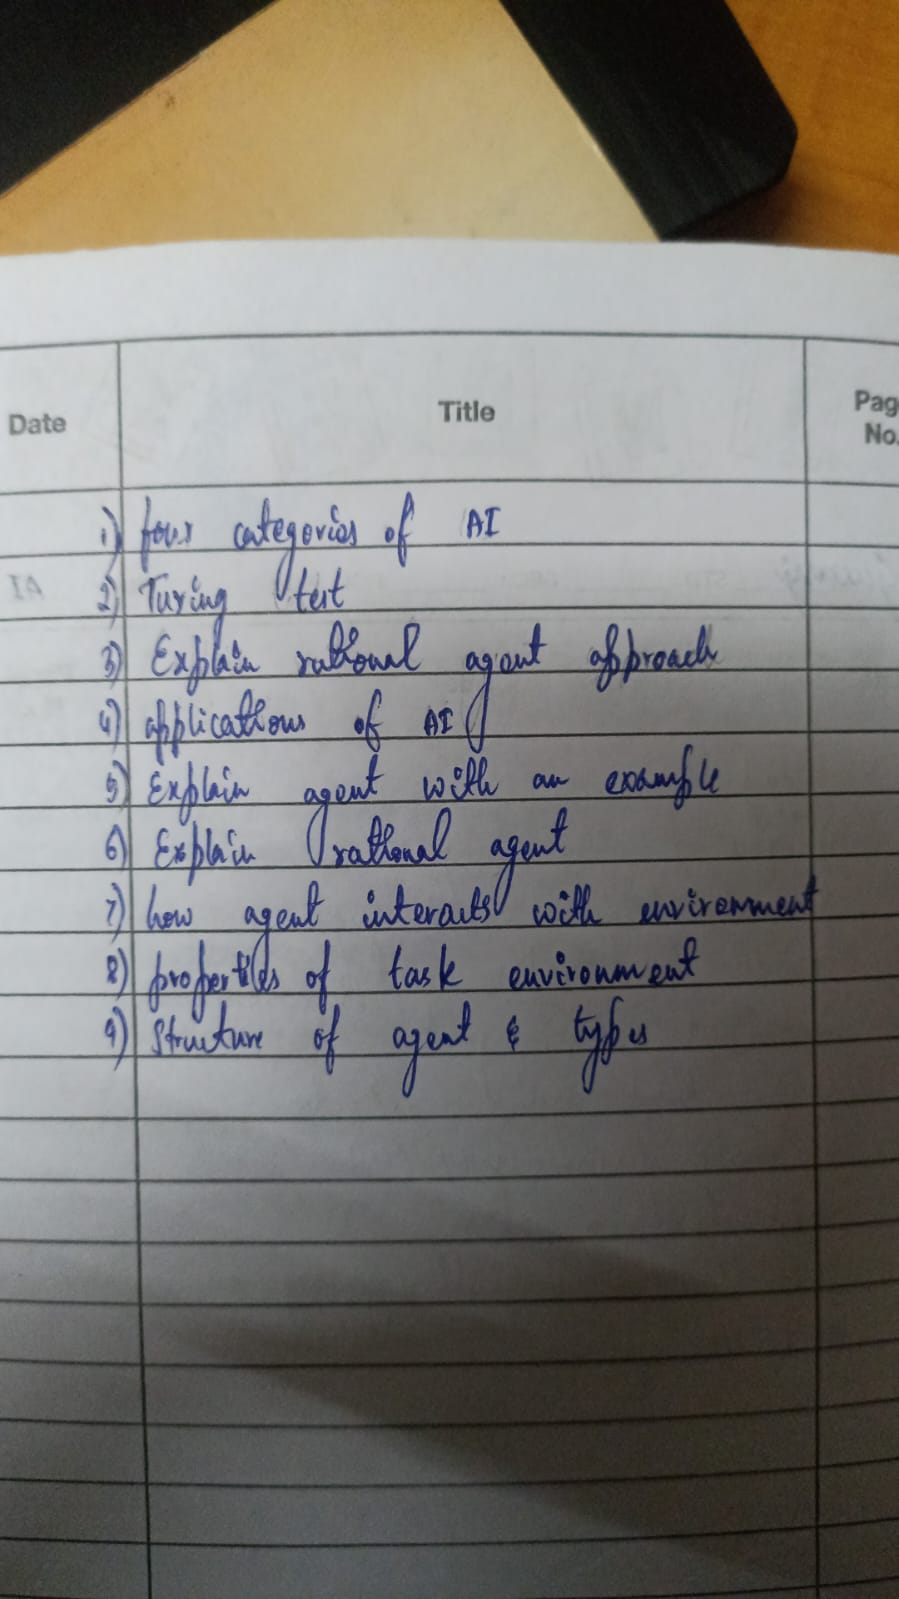 Date Title Pag
No.
1) four categories of AI
2) Turing test
3) Explain rational agent approach
4) applications of AI
5) Explain agent with an example
6) Explain rational agent
7) how agent interacts with environment
8) properties of task environment
9) Structure of agent & types